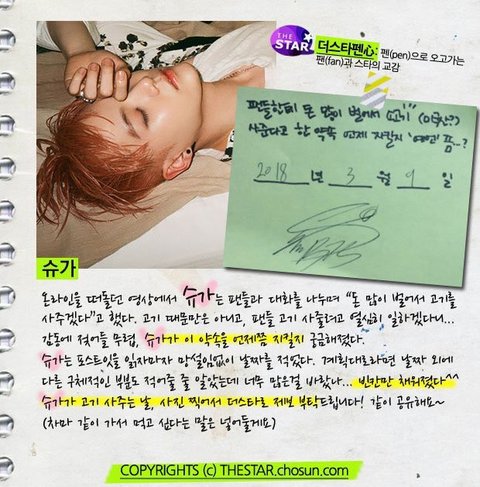 THE STAR
더스타펜心: 펜(pen)으로 오고가는
팬(fan)과 스타의 교감
팬들한테 돈 많이 벌어서 고기
사준다고 한 약속 언제 지킬지 '예고' 쯤..?
2018 년 3 월 9 일
슈가
온라인을 떠돌던 영상에서 슈가는 팬들과 대화를 나누며 “돈 많이 벌어서 고기를
사주겠다”고 했다. 고기 때문만은 아니고, 팬들 고기 사줄려고 열심히 일하겠다니...
감동에 젖어들 무렵, 슈가가 이 약속을 언제쯤 지킬지 궁금해졌다.
슈가는 포스트잇을 읽자마자 망설임없이 날짜를 적었다. 계획대로라면 날짜 외에
다른 구체적인 부분도 적어줄 줄 알았는데 너무 많은걸 바랐나... 빈칸만 채워졌다^^
슈가가 고기 사주는 날, 사진 찍어서 더스타로 제보 부탁드립니다! 같이 공유해요~
(차마 같이 가서 먹고 싶다는 말은 넣어둘게요)
COPYRIGHTS (c) THESTAR.chosun.com